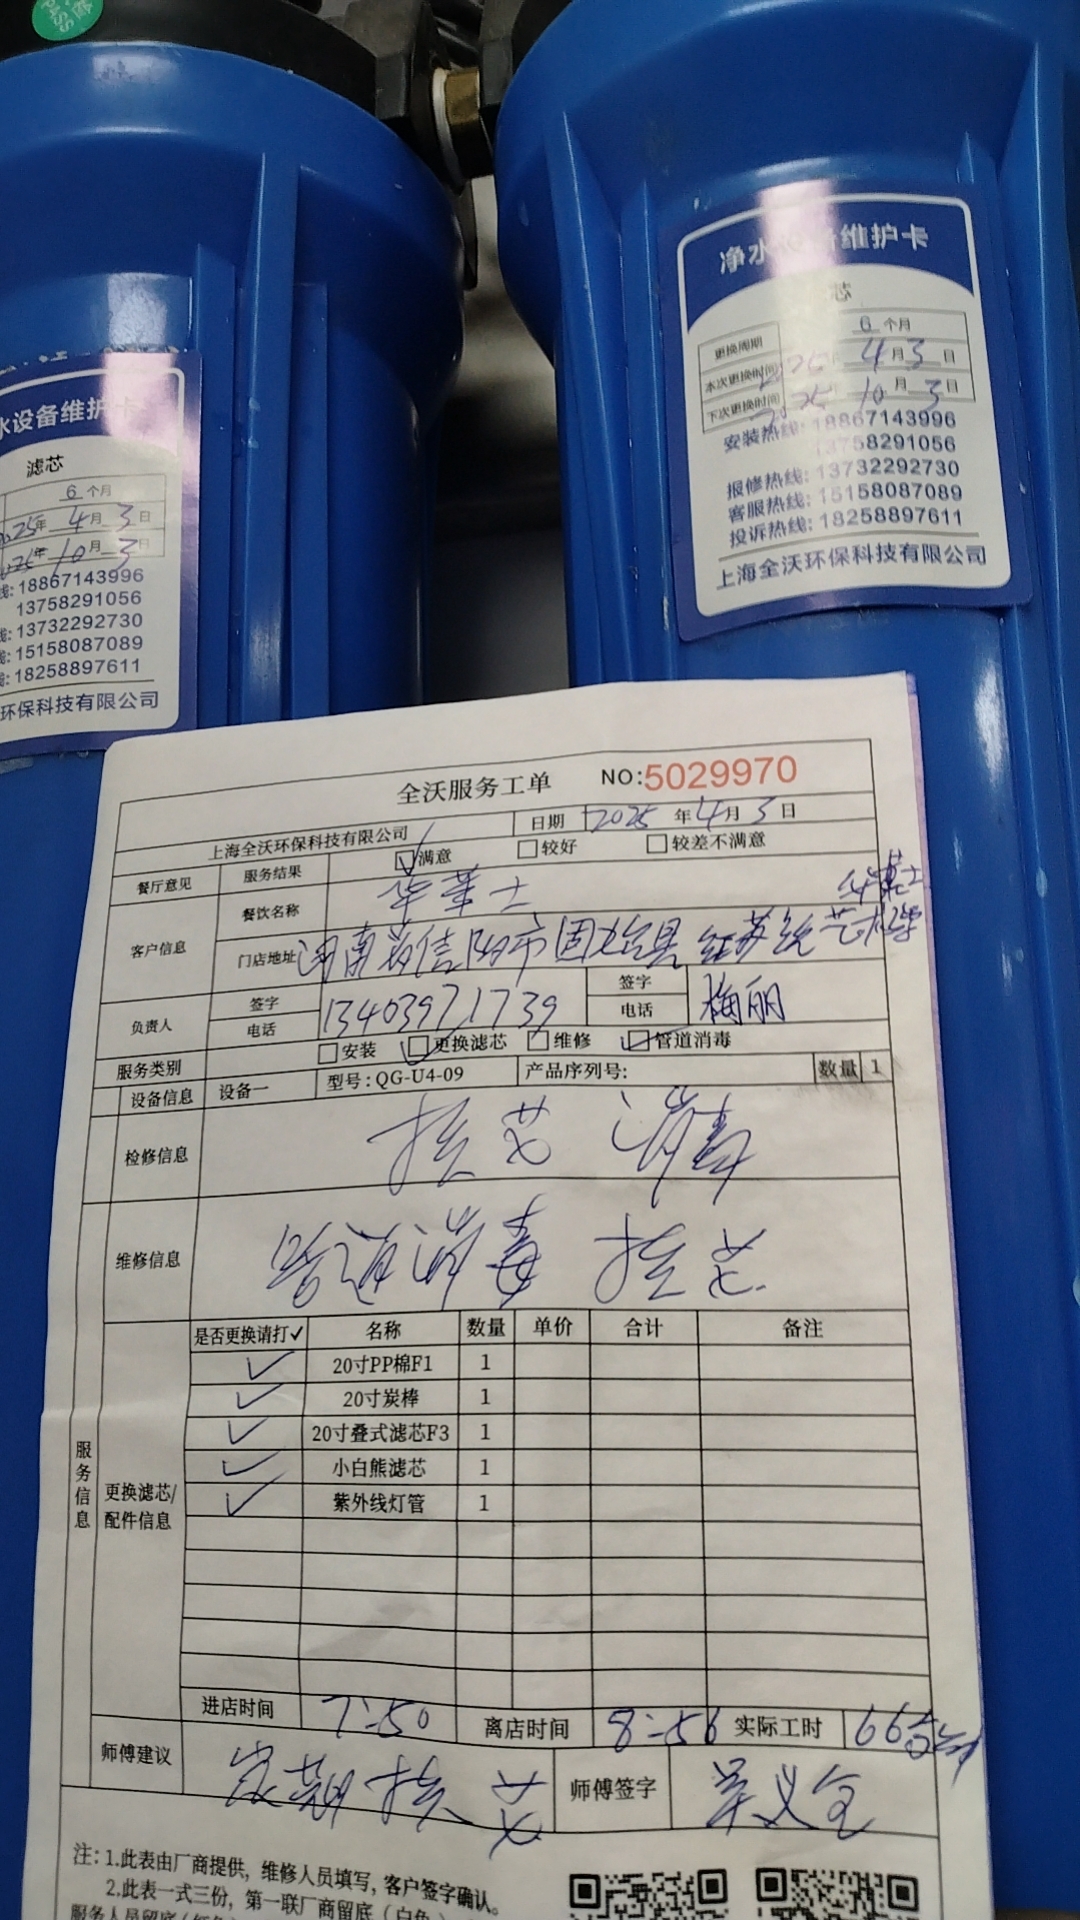 PASS
水设备维护卡
滤芯
6 个月
2025年 4月 3日
年 10月 3日
线: 18867143996
13758291056
线: 13732292730
线: 15158087089
线: 18258897611
环保科技有限公司
净水设备维护卡
芯
更换周期 6 个月
本次更换时间 年 4月 3日
下次更换时间 年 10月 3日
安装热线: 18867143996
13758291056
报修热线: 13732292730
客服热线: 15158087089
投诉热线: 18258897611
上海全沃环保科技有限公司
全沃服务工单 NO:5029970
上海全沃环保科技有限公司 日期 2025 年 4月 3日
餐厅意见 服务结果 满意 较好 较差不满意
客户信息 餐饮名称 华莱士
门店地址 河南省信阳市固始县 华莱士
负责人 签字 电话 13403971739 签字 电话 梅丽
服务类别 安装 更换滤芯 维修 管道消毒
设备信息 设备一 型号: QG-U4-09 产品序列号: 数量 1
检修信息 换芯 消毒
维修信息 管道消毒 换芯
服务信息
更换滤芯/配件信息
是否更换请打✓ 名称 数量 单价 合计 备注
✓ 20寸PP棉F1 1
✓ 20寸炭棒 1
✓ 20寸叠式滤芯F3 1
✓ 小白熊滤芯 1
✓ 紫外线灯管 1
进店时间 7:50 离店时间 8:56 实际工时 66分钟
师傅建议 定期换芯 师傅签字
注: 1.此表由厂商提供, 维修人员填写, 客户签字确认。
2.此表一式三份, 第一联厂商留底 (白色)